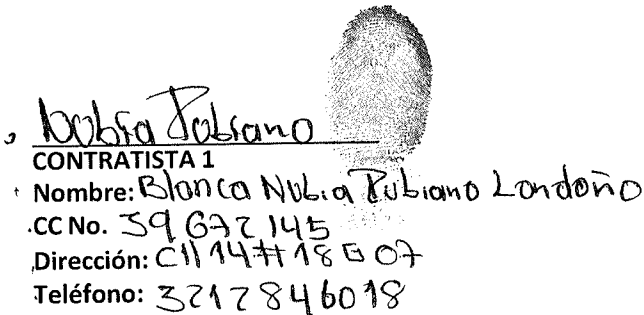 Nubia Rubiano
CONTRATISTA 1
Nombre: Blanca Nubia Rubiano Londoño
CC No. 39672145
Dirección: Cll 14 # 18 G 07
Teléfono: 3212846018